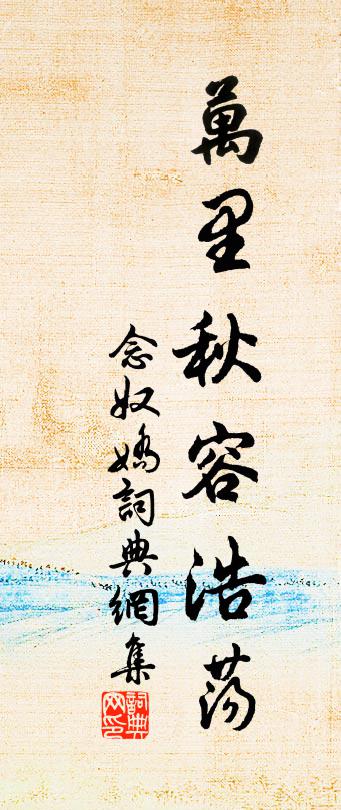 萬里秋容浩蕩
念奴嬌詞典網集
詞典網印